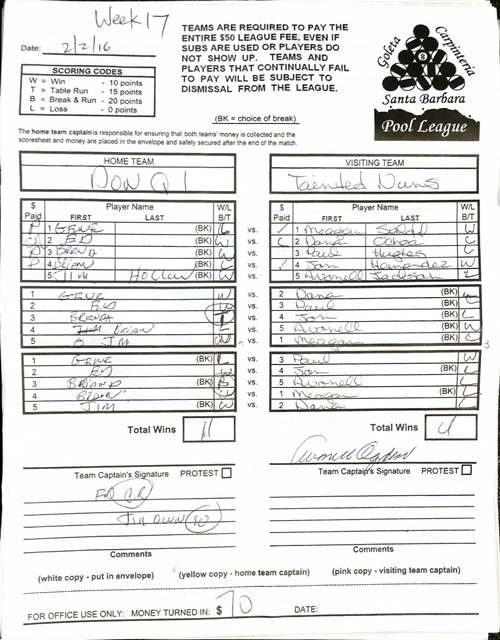 Week 17
Date: 2/2/16
TEAMS ARE REQUIRED TO PAY THE
ENTIRE $50 LEAGUE FEE, EVEN IF
SUBS ARE USED OR PLAYERS DO
NOT SHOW UP. TEAMS AND
PLAYERS THAT CONTINUALLY FAIL
TO PAY WILL BE SUBJECT TO
DISMISSAL FROM THE LEAGUE.
(BK = choice of break)
SCORING CODES
W = Win - 10 points
T = Table Run - 15 points
B = Break & Run - 20 points
L = Loss - 0 points
Goleta Carpinteria
Santa Barbara
Pool League
The home team captain is responsible for ensuring that both teams' money is collected and the
scoresheet and money are placed in the envelope and safely secured after the end of the match.
HOME TEAM VISITING TEAM
Don Q 1 Tainted Nuns
$ Paid Player Name FIRST LAST W/L B/T
$ Paid Player Name FIRST LAST W/L B/T
1 GENE (BK) vs. 1 Meagan W
2 ED (BK) W vs. 2 Dana Ochoa L
3 BRENDA (BK) vs. 3 Paul Hughes
4 BRIAN (BK) vs. 4 Jon Hernandez W
5 JIM (BK) W vs. 5 Avonell Jackson L
1 GENE W vs. 2 Dana (BK)
2 ED vs. 3 Paul (BK)
3 BRENDA vs. 4 Jon (BK) L
4 BRIAN L vs. 5 Avonell (BK) W
5 JIM vs. 1 Meagan (BK)
1 GENE (BK) L vs. 3 Paul W
2 ED W vs. 4 Jon (BK) L
3 (BK) B vs. 5 Avonell L
4 BRIAN W vs. 1 Meagan (BK) L
5 JIM (BK) W vs. 2 Dana L
Total Wins 11 Total Wins 4
Avonell Ogden
Team Captain's Signature PROTEST
Team Captain's Signature PROTEST
ED
JIM OWN 50
Comments
Comments
(white copy - put in envelope) (yellow copy - home team captain) (pink copy - visiting team captain)
FOR OFFICE USE ONLY: MONEY TURNED IN: $ 70 DATE: